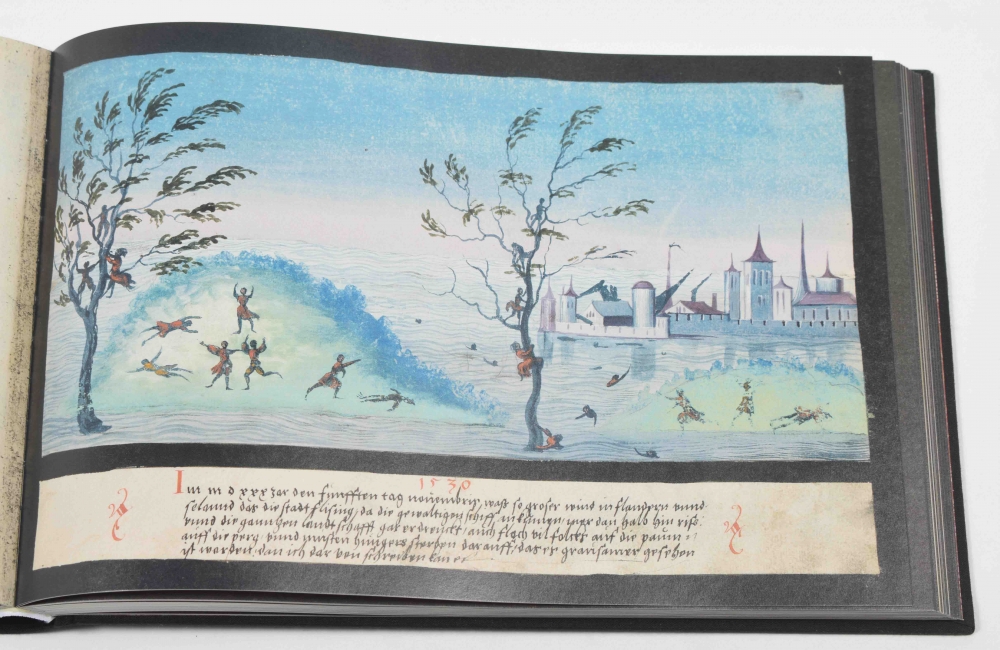 1530
Im m d xxx Jar den fünfften tag nouembrix, wass so groser wind in flandern vnnd
selannd das die stadt flising, da die gewaltigen schiff
vnnd die ganntzen landtschafft gar erdrenckt, auch floch vil folcks auf die paum
auff die perg, vnnd musten hungers sterben darauff, das es grausamer gesehen
ist worden, dan ich dar von schreiben